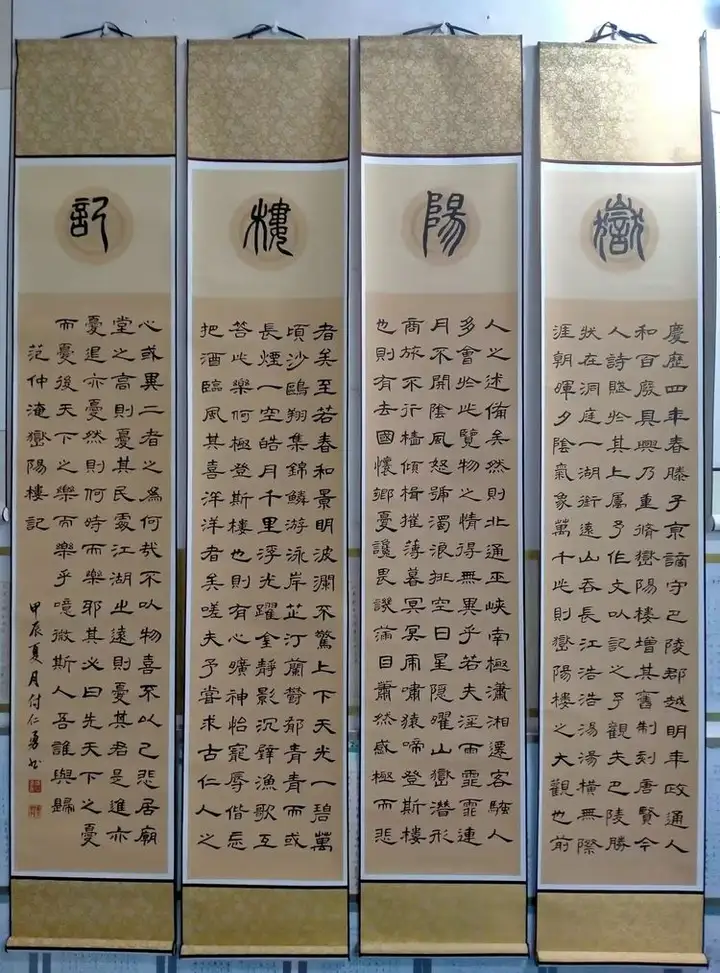 嶽
慶歷四年春滕子京謫守巴陵郡越明年政通人
和百廢具興乃重脩嶽陽樓增其舊制刻唐賢今
人詩賦於其上屬予作文以記之予觀夫巴陵勝
狀在洞庭一湖銜遠山吞長江浩浩湯湯橫無際
涯朝暉夕陰氣象萬千此則嶽陽樓之大觀也前
陽
人之述備矣然則北通巫峽南極瀟湘遷客騷人
多會於此覽物之情得無異乎若夫淫雨霏霏連
月不開陰風怒號濁浪排空日星隱曜山嶽潛形
商旅不行檣傾楫摧薄暮冥冥虎嘯猿啼登斯樓
也則有去國懷鄉憂讒畏譏滿目蕭然感極而悲
樓
者矣至若春和景明波瀾不驚上下天光一碧萬
頃沙鷗翔集錦鱗游泳岸芷汀蘭鬱郁青青而或
長煙一空皓月千里浮光躍金靜影沉璧漁歌互
答此樂何極登斯樓也則有心曠神怡寵辱偕忘
把酒臨風其喜洋洋者矣嗟夫予嘗求古仁人之
記
心或異二者之為何哉不以物喜不以己悲居廟
堂之高則憂其民處江湖之遠則憂其君是進亦
憂退亦憂然則何時而樂耶其必曰先天下之憂
而憂後天下之樂而樂乎噫微斯人吾誰與歸
范仲淹嶽陽樓記
甲辰夏月付仁勇書